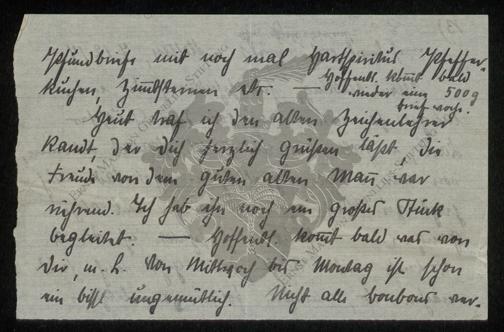 Pfundbriefe mit noch mal Hartspiritus Pfeffer-
kuchen, Zimtsternen etc. — Hoffentl. kommt bald
wieder eine 500g
brief woche.
Heut traf ich den alten Zeichenlehrer
Kandt, der dich herzlich grüßen läßt, die
Freude von dem guten alten Mann war
rührend. Ich hab ihn noch ein großes Stück
begleitet. — Hoffentl. kommt bald was von
dir, m. L. Von Mittwoch bis Montag ist schon
ein bissl ungemütlich. Nicht alle bonbons ver-